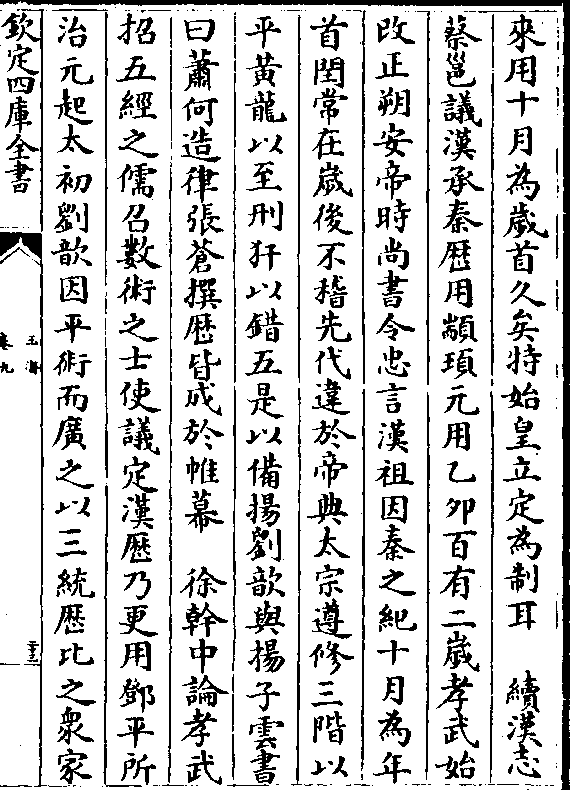 來用十月為歲首久矣特始皇立定為制耳　續漢志
蔡邕議漢承秦歷用顓頊元用乙卯百有二歲孝武始
改正朔安帝時尚書令忠言漢祖因秦之紀十月為年
首閏常在歲後不稽先代違於帝典太宗遵修三階以
平黃龍以至刑犴以錯五是以備揚劉歆與揚子雲書
曰蕭何造律張蒼撰歷皆成於帷幕　徐幹中論孝武
招五經之儒召數術之士使議定漢歷乃更用鄧平所
治元起太初劉歆因平術而廣之以三統歷比之衆家
欽定四庫全書
玉海
卷九
二十三